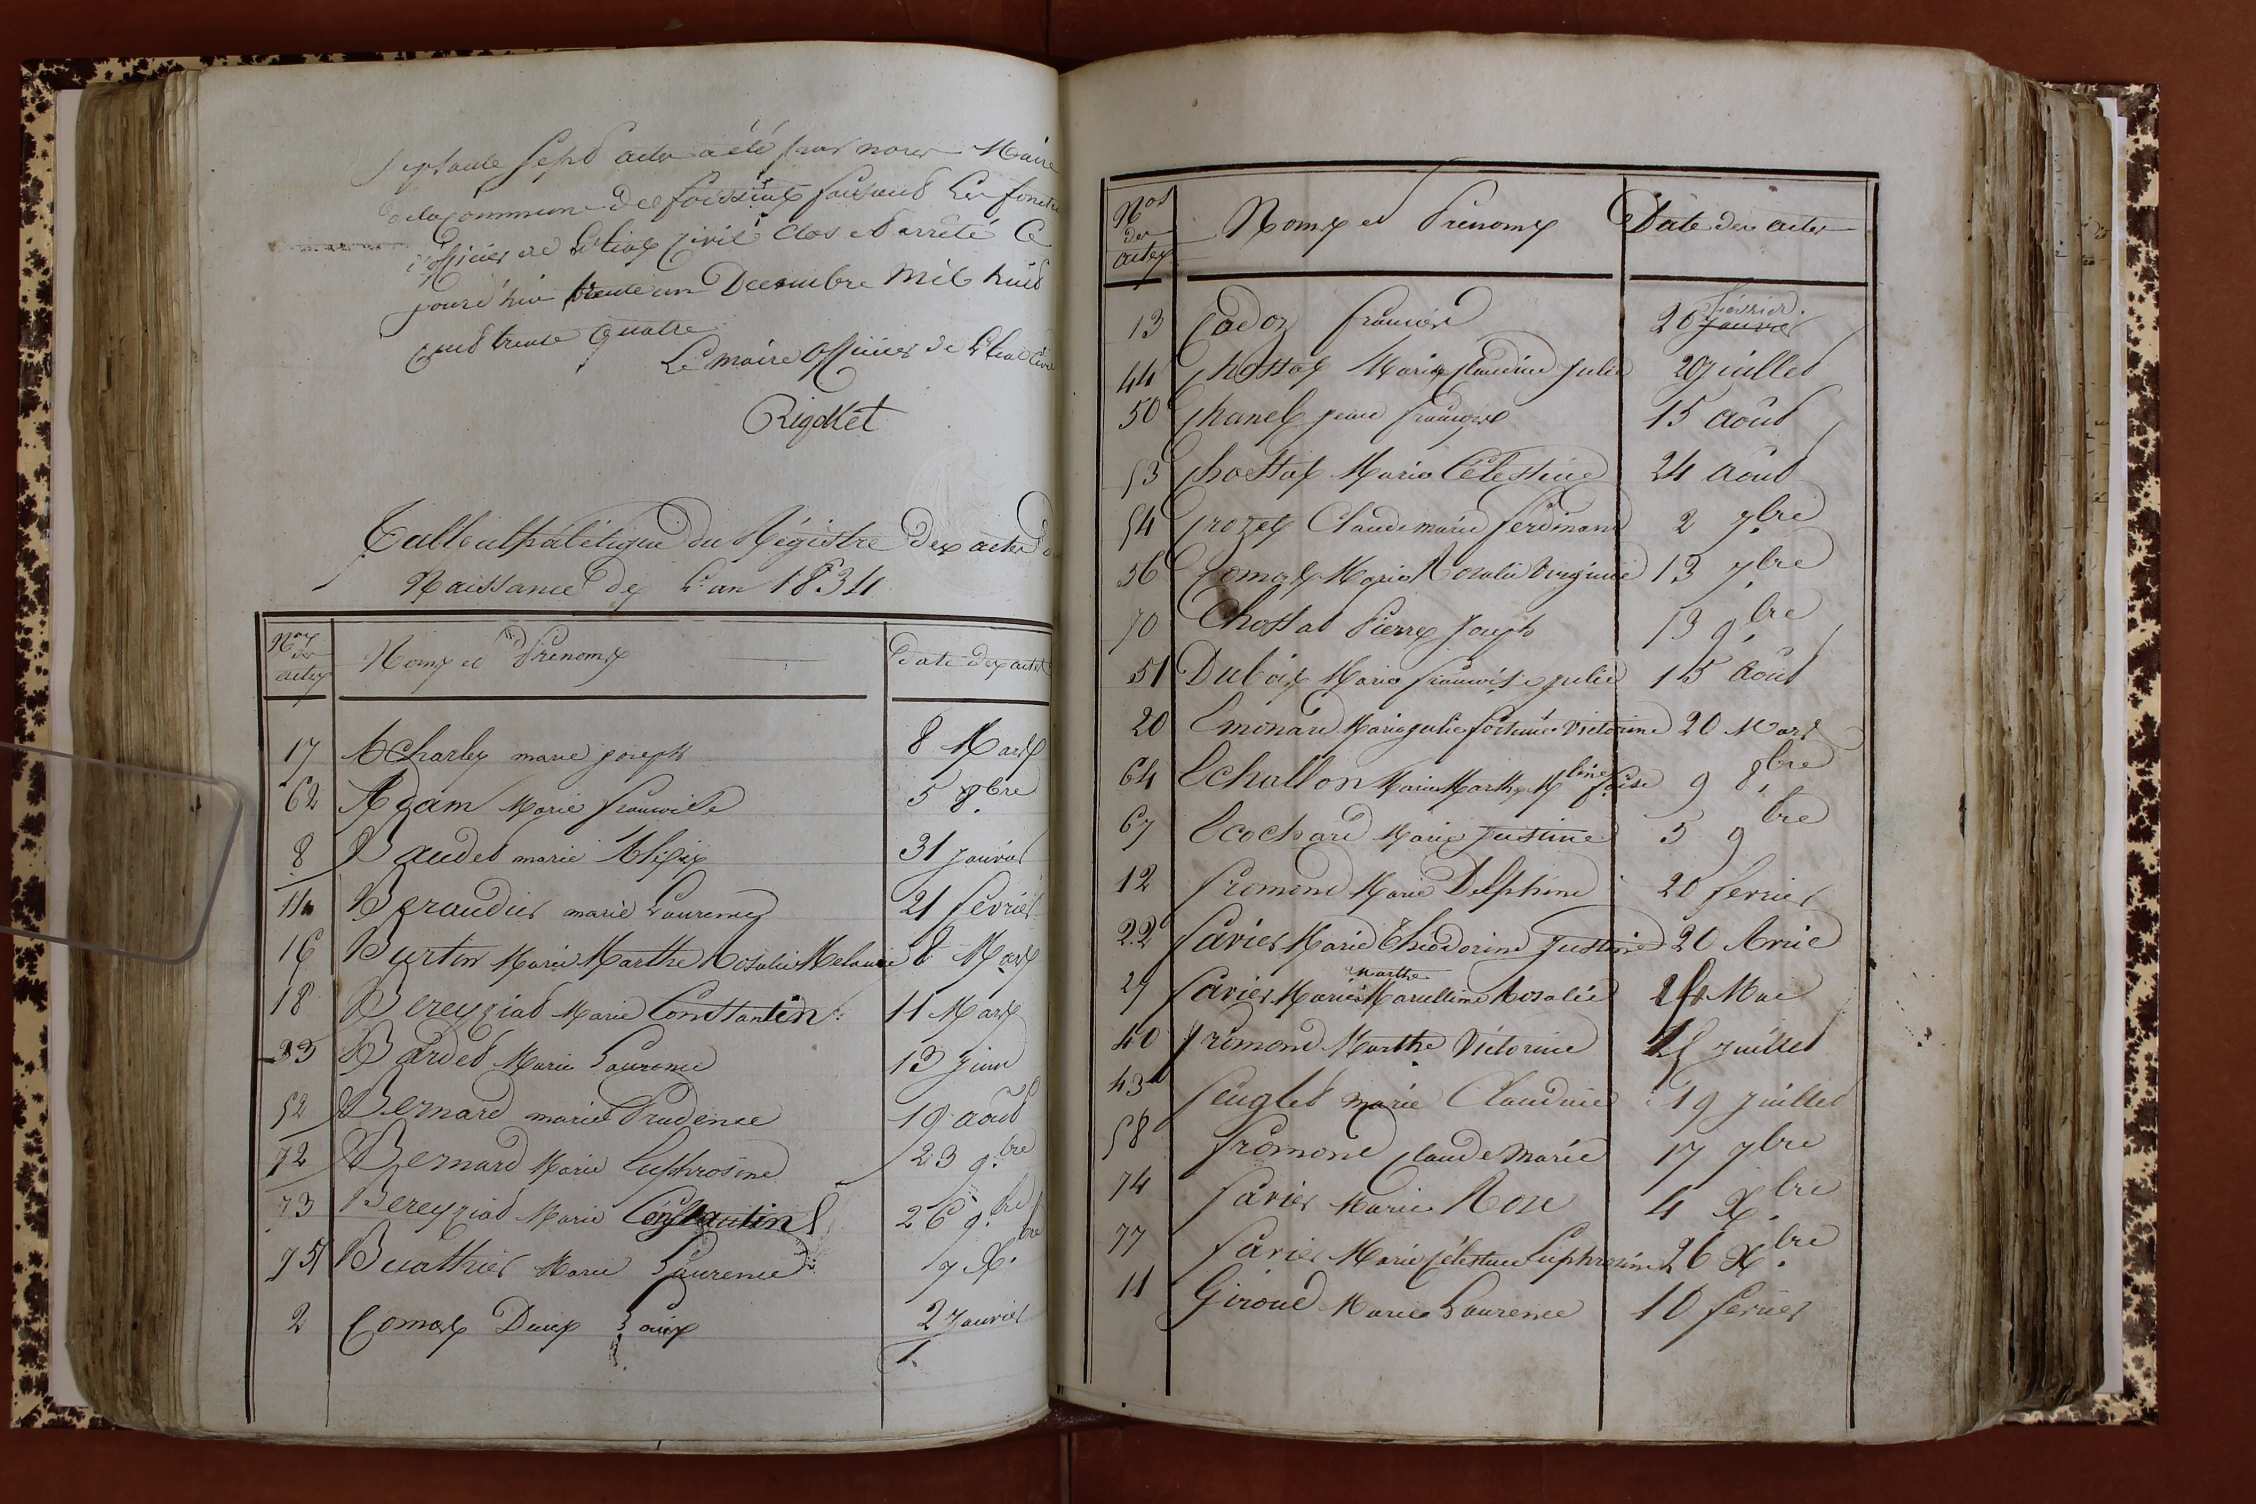 septante sept actes a été par nous Maire
de la commune de foissiat faisant les fonctio
d'officier de l'etat Civil clos et arrêté Ce
jourd'hui trente un Decembre Mil huit
cent trente quatre
Le maire officier de l'Etat Civil
Rigollet
Table alphabétique du Régistre des actes de
Naissance de l'an 1834
Nos des actes Noms et Prénoms Date des actes
17 Acharles marie joseph 8 Mars
62 Adam Marie francoise 5 8.bre
8 Baudet marie Alexis 31 janvier
14 Beraudier marie Laurence 21 fevrier
16 Burtin Marie Marthe Rosalie Melanie 8 Mars
18 Bereyziat Marie Constantin 11 Mars
33 Bardet Marie Laurence 13 juin
52 Bernard marie Prudence 19 août
72 Bernard Marie Euphrosine 23 9.bre
73 Bereyziat Marie Constantin 26 9.bre
75 Buathier Marie Laurence 7 X.bre
2 Comas Denis Louis 2 Janvier
Nos des actes Noms et Prénoms Date des actes
13 Cadoz francois 20 janvier février.
44 Chossat Marie Claudine Julie 20 juillet
50 Chanel jeune françois 15 août
53 Chossat Marie Célestine 24 août
54 Crozet Claude marie ferdinand 2 7.bre
56 Comas Marie Rosalie Virginie 13 7.bre
70 Chossat Pierre Joseph 13 9.bre
51 Dubois Marie francoise julie 15 août
20 Emonard Marie julie Victorine 20 Mars
64 Echallon Marie Marthe Mlaine foise 9 8.bre
67 Ecochard Marie Justine 5 9bre
12 fromond Marie Delphine 20 fevrier
22 favier Marie Théodorine Justine 20 Avril
29 favier Marie Marthe Marcelline Rosalie Mai
40 fromond Marthe Victorine juillet
43 feuglet marie Claudine 19 juillet
58 fromond Claude Marie 17 7bre
74 favier Marie Rose 4 X.bre
77 favier Marie Célestine Euphrosine 26 X.bre
11 Giroud Marie Laurence 10 fevrier